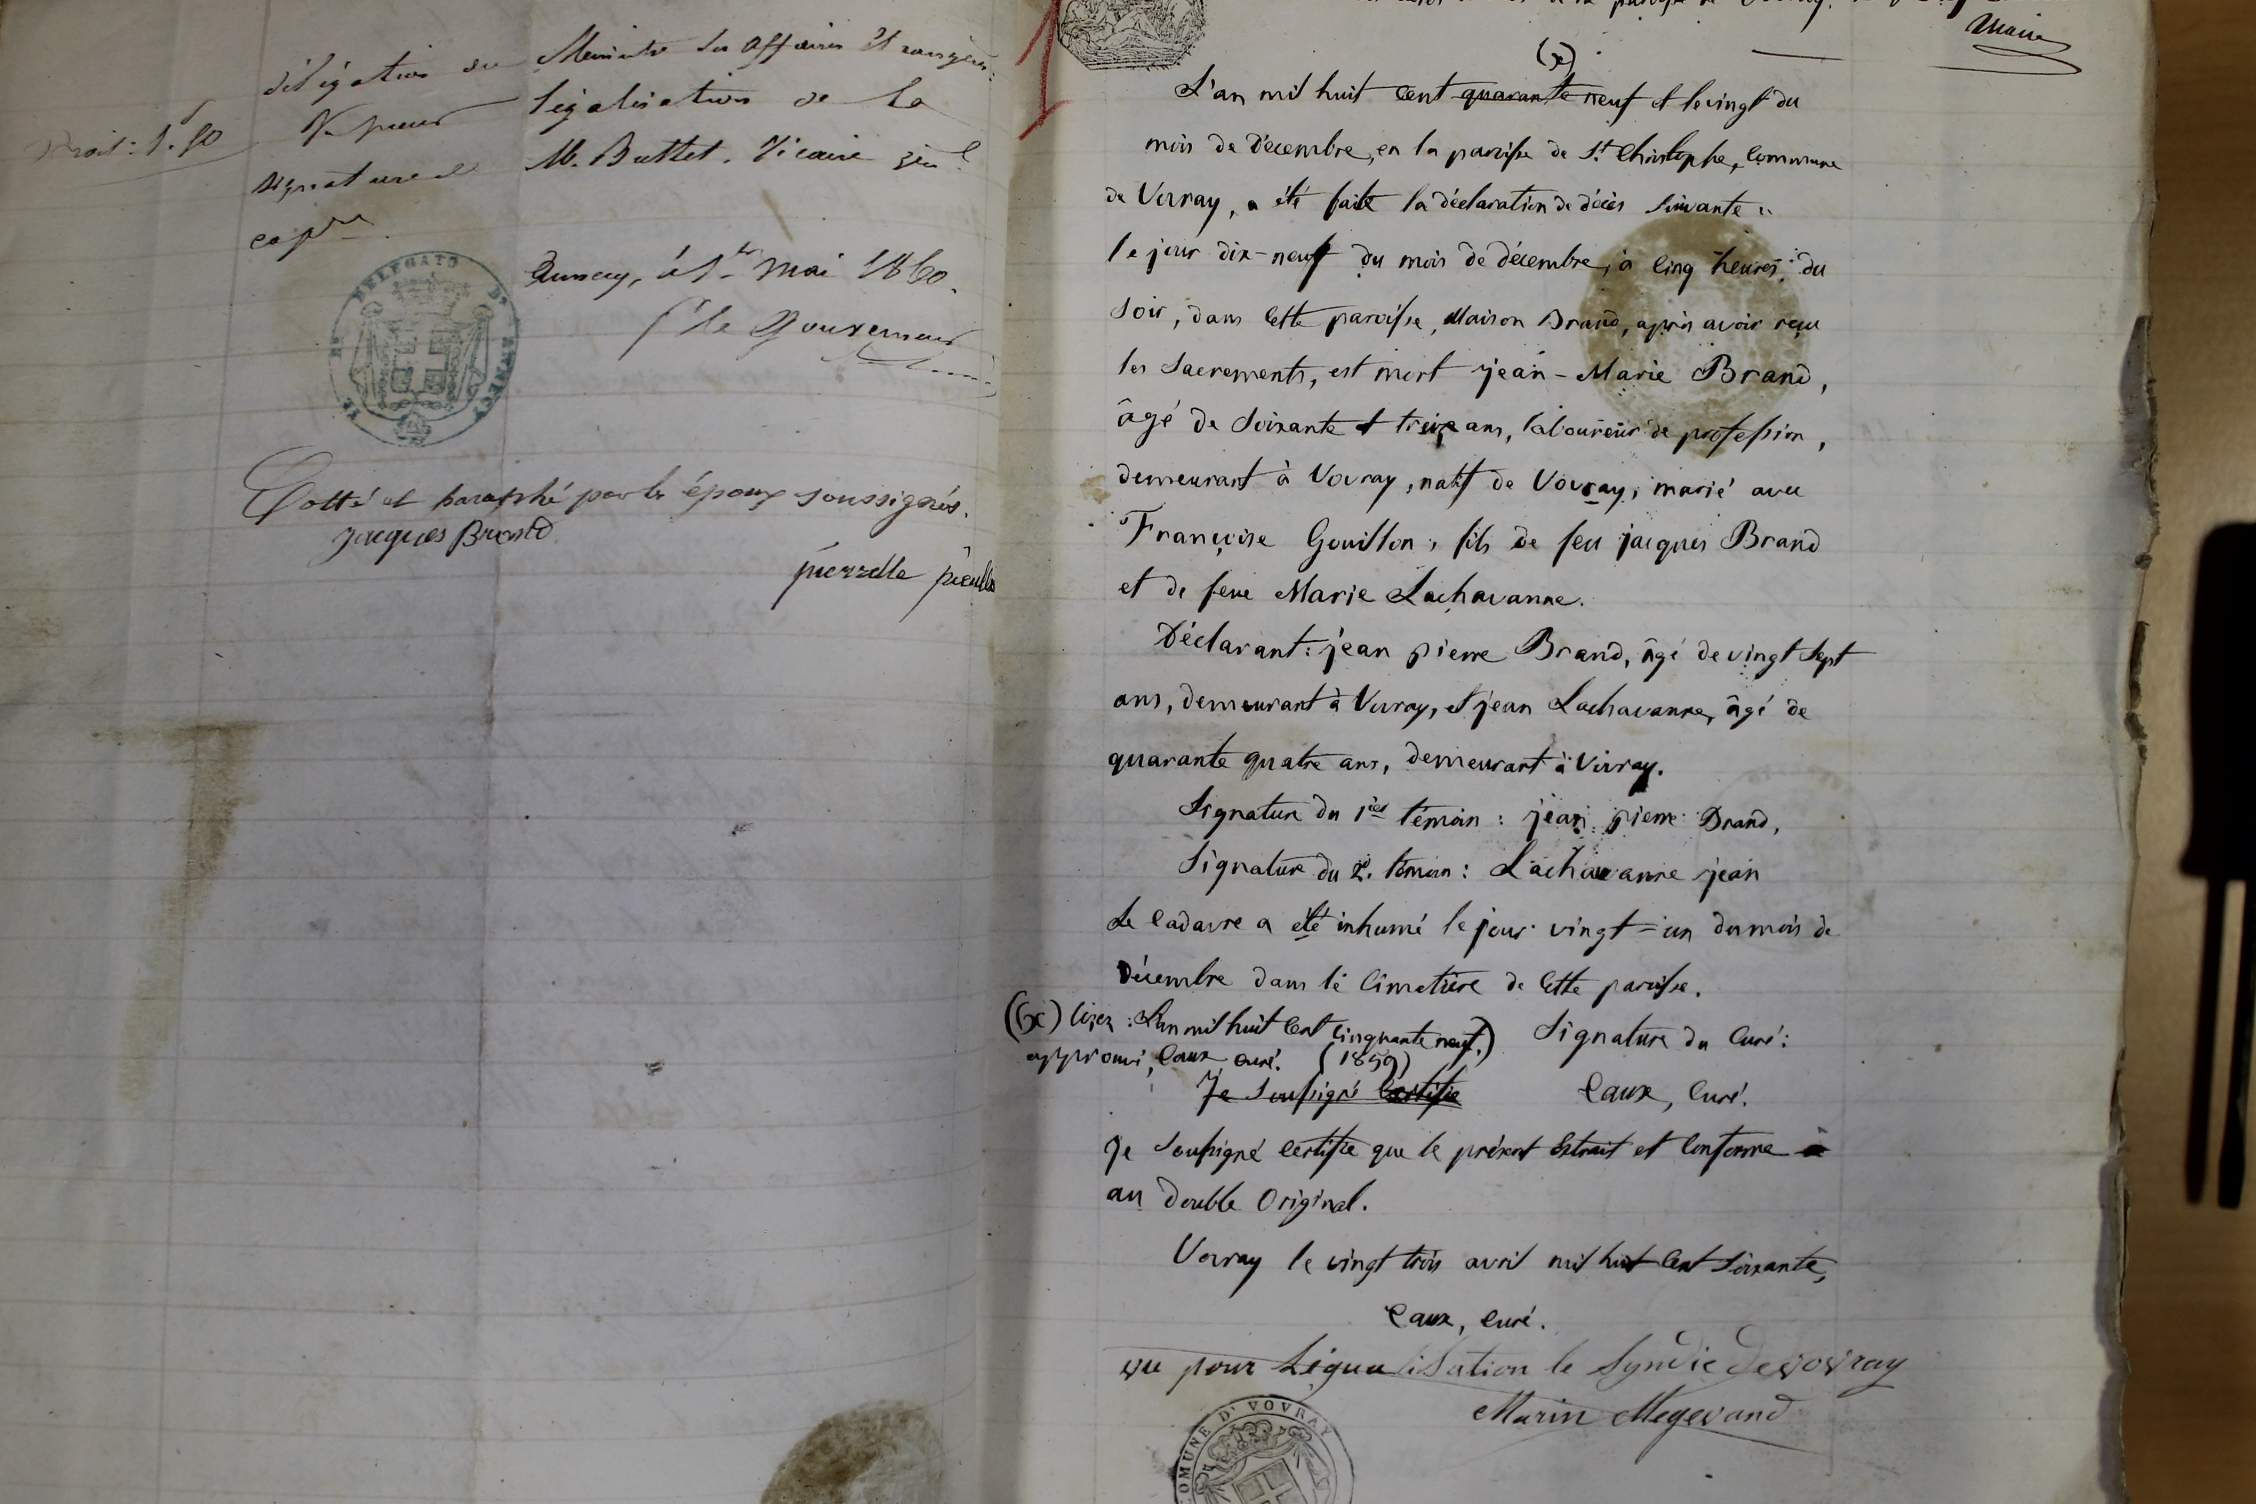 délégation du Ministre des affaires Etrangères:
Vu pour légalisation de la
Droit: 1.50
signature de M. Buttet. Vicaire gén.l
capre.
Annecy, le 1er Mai 1860.
Pr le Gouverneur
DELEGATO D'ANNECY
Cotté et paraphé par les époux soussignés.
Jacques Brand
pierrette
Maire
(x)
L'an mil huit cent quarante neuf et le vingt du
mois de décembre, en la paroisse de St. Christophe, commune
de Vovray, a été faite la déclaration de décès suivante :
le jour dix-neuf du mois de décembre, à cinq heures du
soir, dans cette paroisse, Maison Brand, après avoir reçu
les Sacrements, est mort jean-Marie Brand,
âgé de soixante et treize ans, laboureur de profession,
demeurant à Vovray, natif de Vovray, marié avec
Françoise Gouillon, fils de feu jacques Brand
et de feue Marie Lachavanne.
Déclarant: jean pierre Brand, âgé de vingt sept
ans, demeurant à Vovray, et jean Lachavanne, âgé de
quarante quatre ans, demeurant à Vovray.
Signature du 1er témoin : jean pierre Brand,
Signature du 2e. témoin : Lachavanne jean
Le cadavre a été inhumé le jour vingt=un du mois de
décembre dans le cimetière de cette paroisse.
(x) lisez : L'an mil huit cent cinquante neuf.) Signature du curé :
approuvé, Caux curé. (1859)
Je soussigné certifie Caux, curé.
Je soussigné certifie que le présent Extrait est conforme
au double Original.
Vovray le vingt trois avril mil huit cent soixante,
Caux, curé.
vu pour Légualisation le Syndic de vovray
Marin Megevand
COMUNE D' VOVRAY